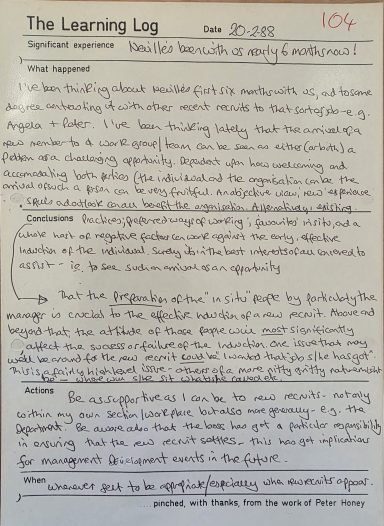 The Learning Log
104
Date 20-2-88
Significant experience Neville's been with us nearly 6 months now!
What happened
I've been thinking about Neville's first six months with us, and to some
degree contrasting it with other recent recruits to that sort of job - e.g.
Angela + Peter. I've been thinking lately that the arrival of a
new member to a work group/team can be seen as either (or both) a
problem or a challenging opportunity. Dependent upon how welcoming and
accomodating both parties (the individual and the organisation) can be the
arrival of such a person can be very fruitful. An objective view, new experience
skills and outlook can all benefit the organisation. Alternatively, existing
Conclusions practices; preferred ways of working; favourites in situ, and a
whole host of negative factors can work against the early, effective
induction of the individual. Surely its in the best interests of all concerned to
assist - ie to see such an arrival as an opportunity
That the preparation of the "in situ" people by particularly the
manager is crucial to the effective induction of a new recruit. Above and
beyond that the attitude of those people will most significantly
affect the success or failure of the induction. One issue that may
well be around for the new recruit could be "I wanted that job s/he's got".
This is a fairly high level issue - others of a more nitty gritty nature might
be - where will s/he sit what's he called etc.
Actions Be as supportive as I can be to new recruits - not only
within my own section/workplace but also more generally - e.g. the
Department. Be aware also that the boss has got a particular responsibility
in ensuring that the new recruit settles - this has got implications
for management development events in the future.
When whenever felt to be appropriate/especially when new recruits appear.
....pinched, with thanks, from the work of Peter Honey